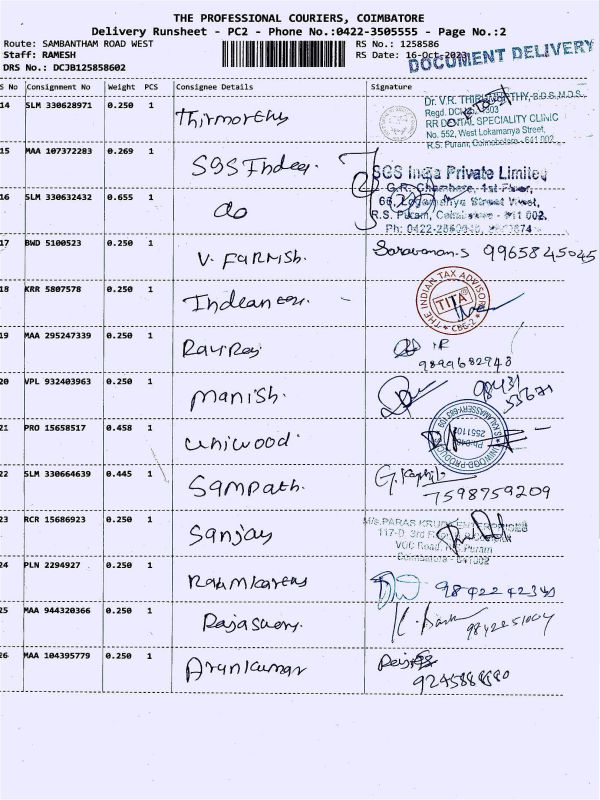 THE PROFESSIONAL COURIERS, COIMBATORE
Delivery Runsheet - PC2 - Phone No.:0422-3505555 - Page No.:2
Route: SAMBANTHAM ROAD WEST RS No.: 1258586
Staff: RAMESH RS Date: 16-Oct-2023
DRS No.: DCJB125858602
DOCUMENT DELIVERY
S No Consignment No Weight PCS Consignee Details Signature
14 SLM 330628971 0.250 1 Thirmorthy
Dr. V.R. B.D.S.,M.D.S.,
RR DENTAL SPECIALITY CLINIC
No. 552, West Lokamanya Street,
R.S. Puram, Coimbatore - 641 002.
15 MAA 107372283 0.269 1 SGS India.
SGS India Private Limited
G.R. Chambers, 1st Floor,
16 SLM 330632432 0.655 1 do
66, Logamanya Street West,
R.S. Puram, Coimbatore - 641 002.
17 BWD 5100523 0.250 1 V. FARMISh. Saravanan.S 9965845045
18 KRR 5807578 0.250 1
THE INDIAN TAX ADVISOR
TITA
CBE-2
19 MAA 295247339 0.250 1 Raviraj
9899682943
20 VPL 932403963 0.250 1 Manish.
98431
55671
21 PRO 15658517 0.458 1 Uniwood
22 SLM 330664639 0.445 1 Sampath.
7598759209
23 RCR 15686923 0.250 1 Sanjay
M/s.PARAS ENTERPRISES
117-D, 3rd
VOC Road, R.S. Puram
Coimbatore - 641002
24 PLN 2294927 0.250 1
9842242341
25 MAA 944320366 0.250 1
9842251004
26 MAA 104395779 0.250 1 Arunkumar